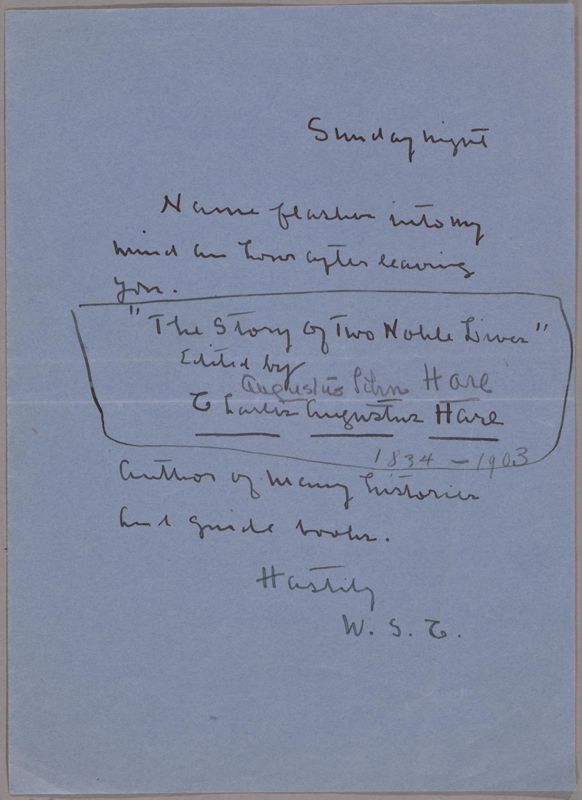 Sunday night
Name flashes into my
mind an hour after leaving
you.
"The Story of Two Noble Lives"
Edited by
Augustus John Hare
Charles Augustus Hare
1834 - 1903
author of many histories
and guide books.
Hastily
W. S. C.